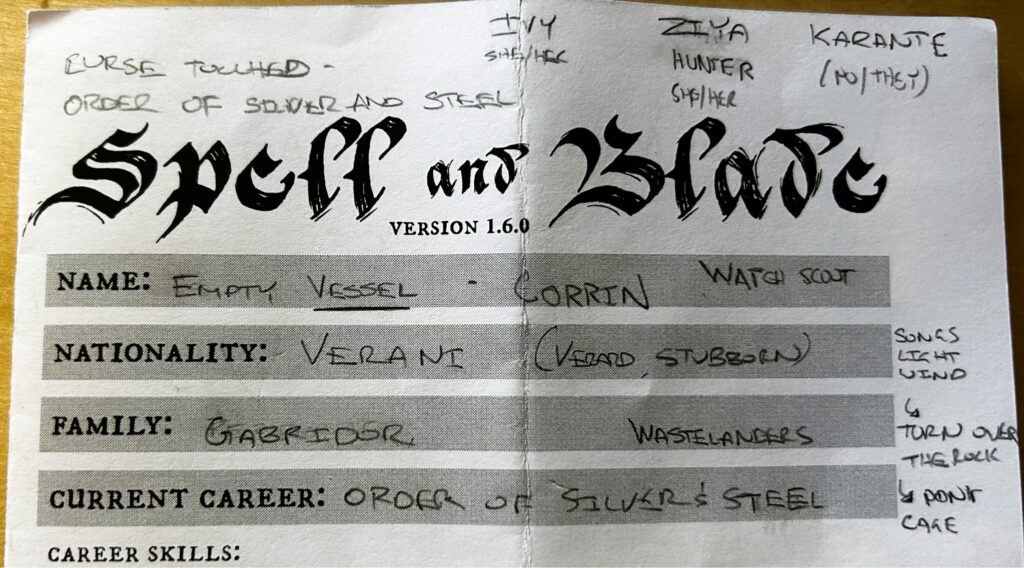 IVY
SHE/HER
ZIYA
HUNTER
SHE/HER
KARANTE
(NO/THEY)
CURSE TOUCHED -
ORDER OF SILVER AND STEEL
Spell and Blade
VERSION 1.6.0
NAME: EMPTY VESSEL - CORRIN WATCH SCOUT
NATIONALITY: VERANI (VERARD, STUBBORN)
SONGS
LIGHT
WIND
FAMILY: GABRIDOR WASTELANDERS
↳
TURN OVER
THE ROCK
CURRENT CAREER: ORDER OF SILVER & STEEL
↳ DON'T
CARE
CAREER SKILLS: